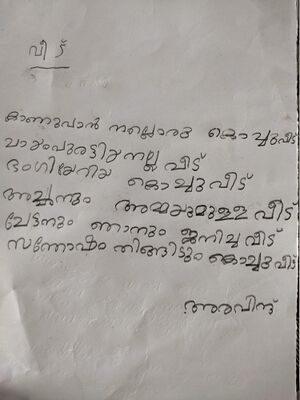 വീട്
കാണുവാൻ നല്ലൊരു കൊച്ചുവീട്
ചായംപുരട്ടിയ നല്ല വീട്
ഭംഗിയേറിയ കൊച്ചു വീട്
അച്ഛനും അമ്മയുമുള്ള വീട്
ചേട്ടനും ഞാനും ജനിച്ച വീട്
സന്തോഷം തിങ്ങിടും കൊച്ചു വീട്
അരവിന്ദ്